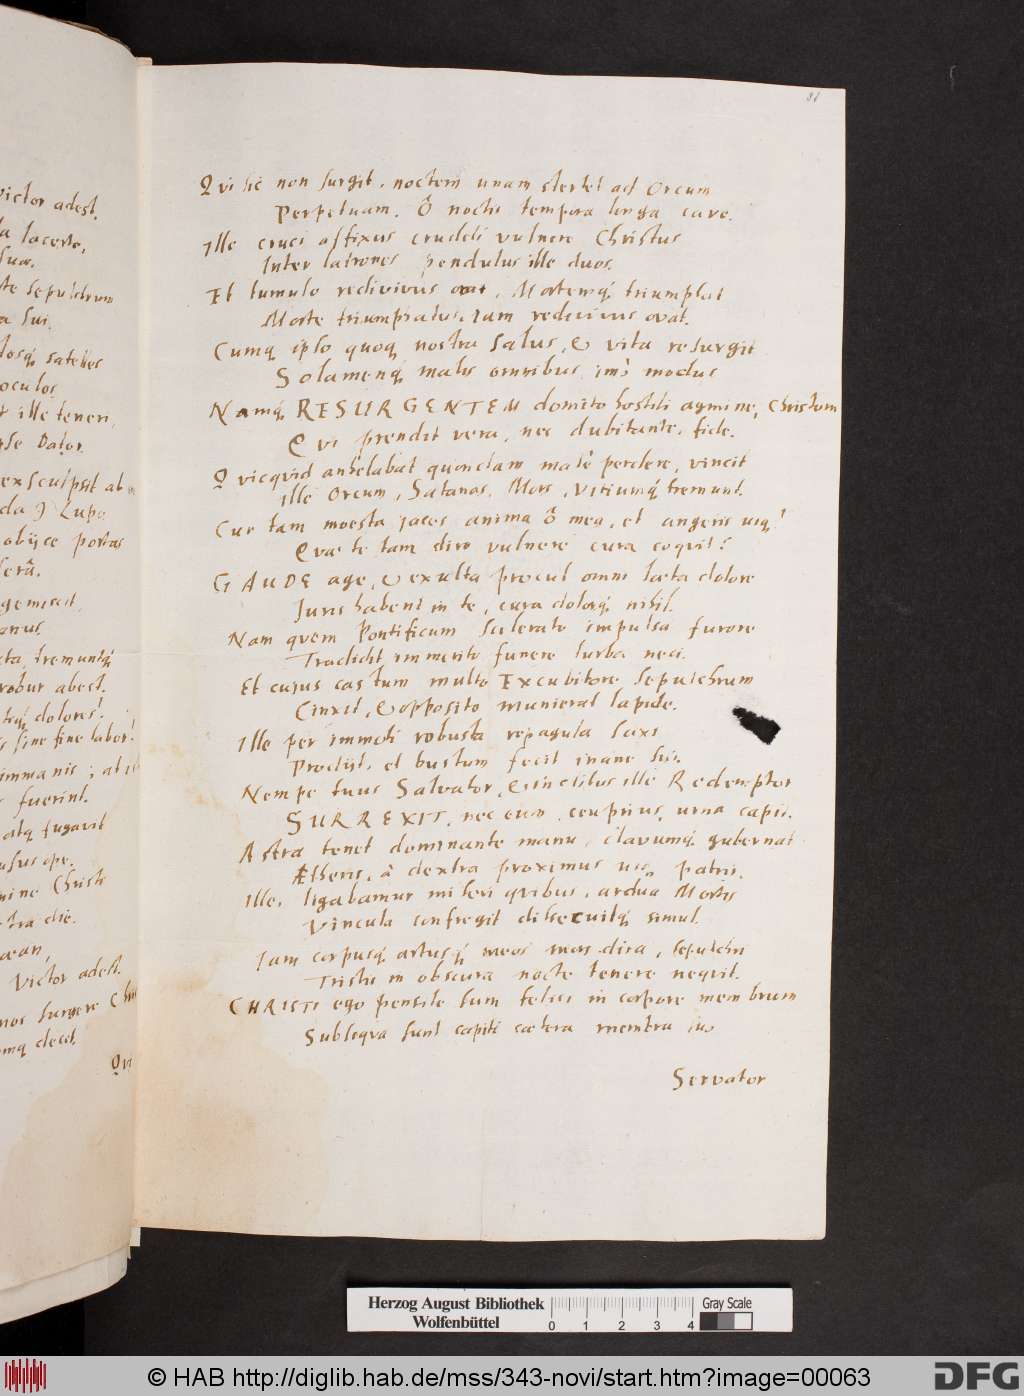 victor adest.
lacerte,
suæ.
sepulchrum
sui.
satelles
oculos
ille teneri,
Dator.
exsculpsit ab
Lupo
obijce portas
gemiscit,
tremuntq́
robur abest.
doloris!
sine fine labor!
immanis; at
fuerint.
atq fugavit
ope.
Christi
die.
Victor adest.
nos surgere
decet.
Qvi
31
Qvi sic non surgit, noctem unam stertet ad Orcum
Perpetuam. Ô noctis tempora longa cave.
Ille cruci affixus crudeli vulnere Christus
Inter latrones pendulus ille duos.
Et tumulo redivivus ovat, Mortemq́ triumphat
Morte triumphatus, iam redivivus ovat.
Cumq ipso quoq nostra Salus, & vita resurgit
Solamenq́ malis omnibus, modus
Namq́ RESURGENTEM domito hostili agmine, Christum
Qvi prendit vera, nec dubitante, fide.
Qvicqvid anhelabat quondam malè perdere, vincit
Ille Orcum, Satanas, Mors, Vitiumq́ tremunt.
Cur tam moesta jaces anima ô mea, et angeris usq́?
Qvæ te tam diro vulnere cura coqvit?
GAUDE age, & exulta procul omni læta dolore
Juris habent in te, cura dolorq́ nihil.
Nam qvem Pontificum scelerato impulsa furore
Tradidit immerito funere turba neci.
Et cujus castum multo Excubitore sepulchrum
Cinxit, & opposito munierat lapide.
Ille per immoti robusta repagula saxi
Prodijt, et bustum fecit inane sui.
Nempe tuus Salvator, & inclitus ille Redemptor
SURREXIT, nec eum, ceu prius, urna capit.
Astra tenet dominante manu, clavumq́ gubernat
Ætheris, â dextra proximus patris.
Ille, ligabamur miseri qvibus, ardua Mortis
Vincula confregit dissecuitq́ simul.
Iam corpusq́ artusq́ meos mors dira, sepulchri
Tristis in obscura nocte tenere neqvit.
CHRISTI ego pensile sum felici in corpore membrum
Subseqva sunt capiti cætera membra suo
Servator
Herzog August Bibliothek
Wolfenbüttel
0 1 2 3 4
Gray Scale
© HAB http://diglib.hab.de/mss/343-novi/start.htm?image=00063
DFG